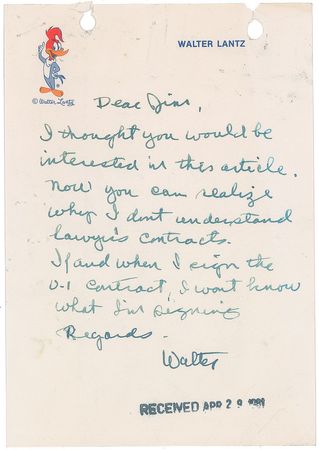 WALTER LANTZ
© Walter Lantz
Dear Jim,
I thought you would be
interested in this article.
Now you can realize
why I don't understand
lawyer's contracts.
If and when I sign the
U-1 contract, I wont know
what I'm signing
Regards.
Walter
RECEIVED APR 29 1981